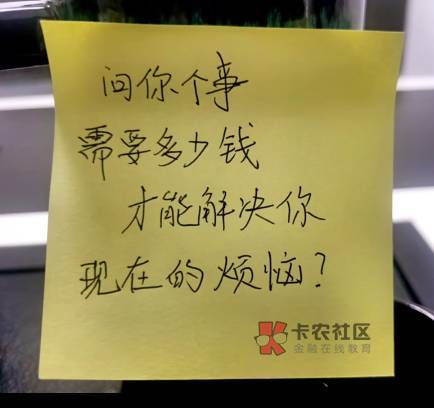 问你个事
需要多少钱
才能解决你
现在的烦恼?
卡农社区
金融在线教育